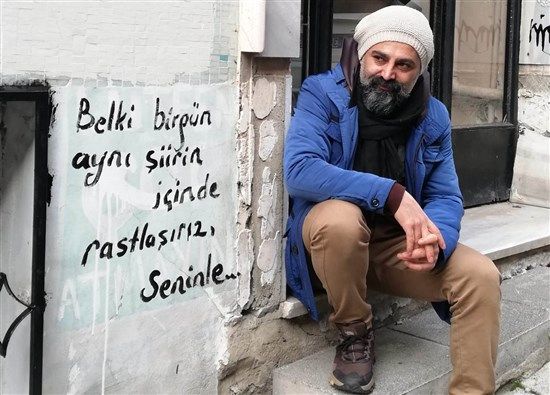 Belki birgün
aynı şiirin
içinde
rastlaşırız,
Seninle...